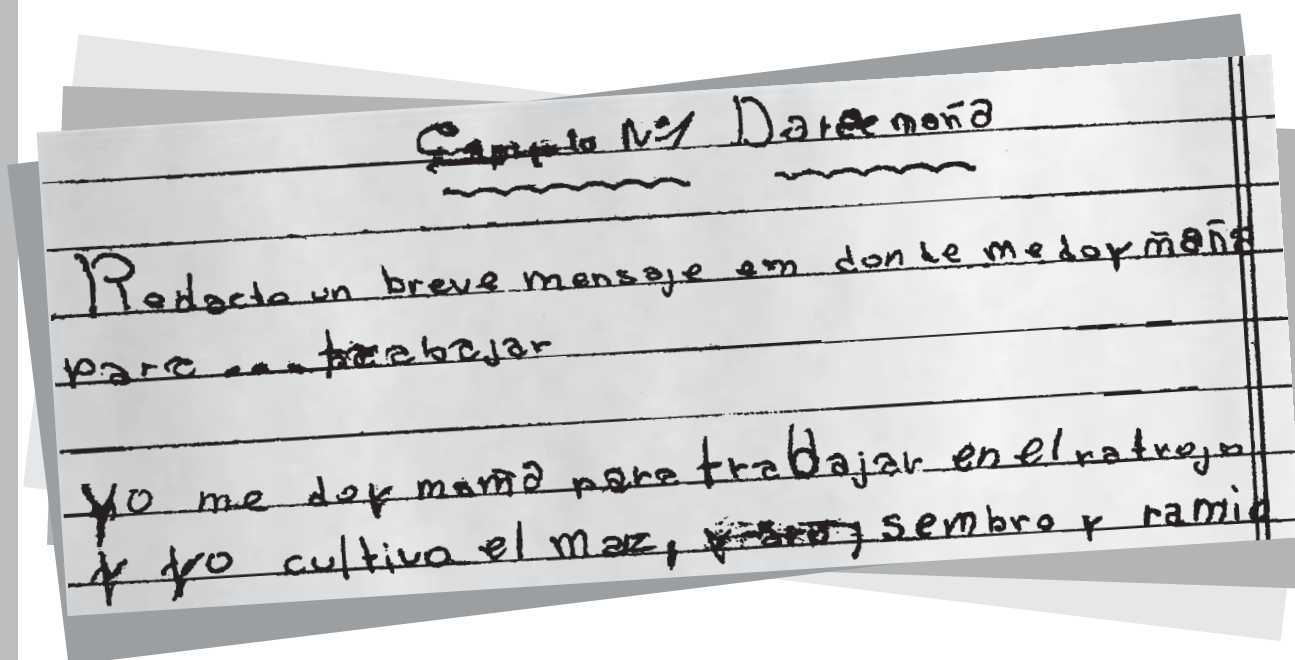 Nº1 Darse moña
Redacto un breve mensaje em donde me doy maña
para trabajar
yo me doy mamã para trabajar en el ratrojo
y yo cultivo el maz, sembro y ramio